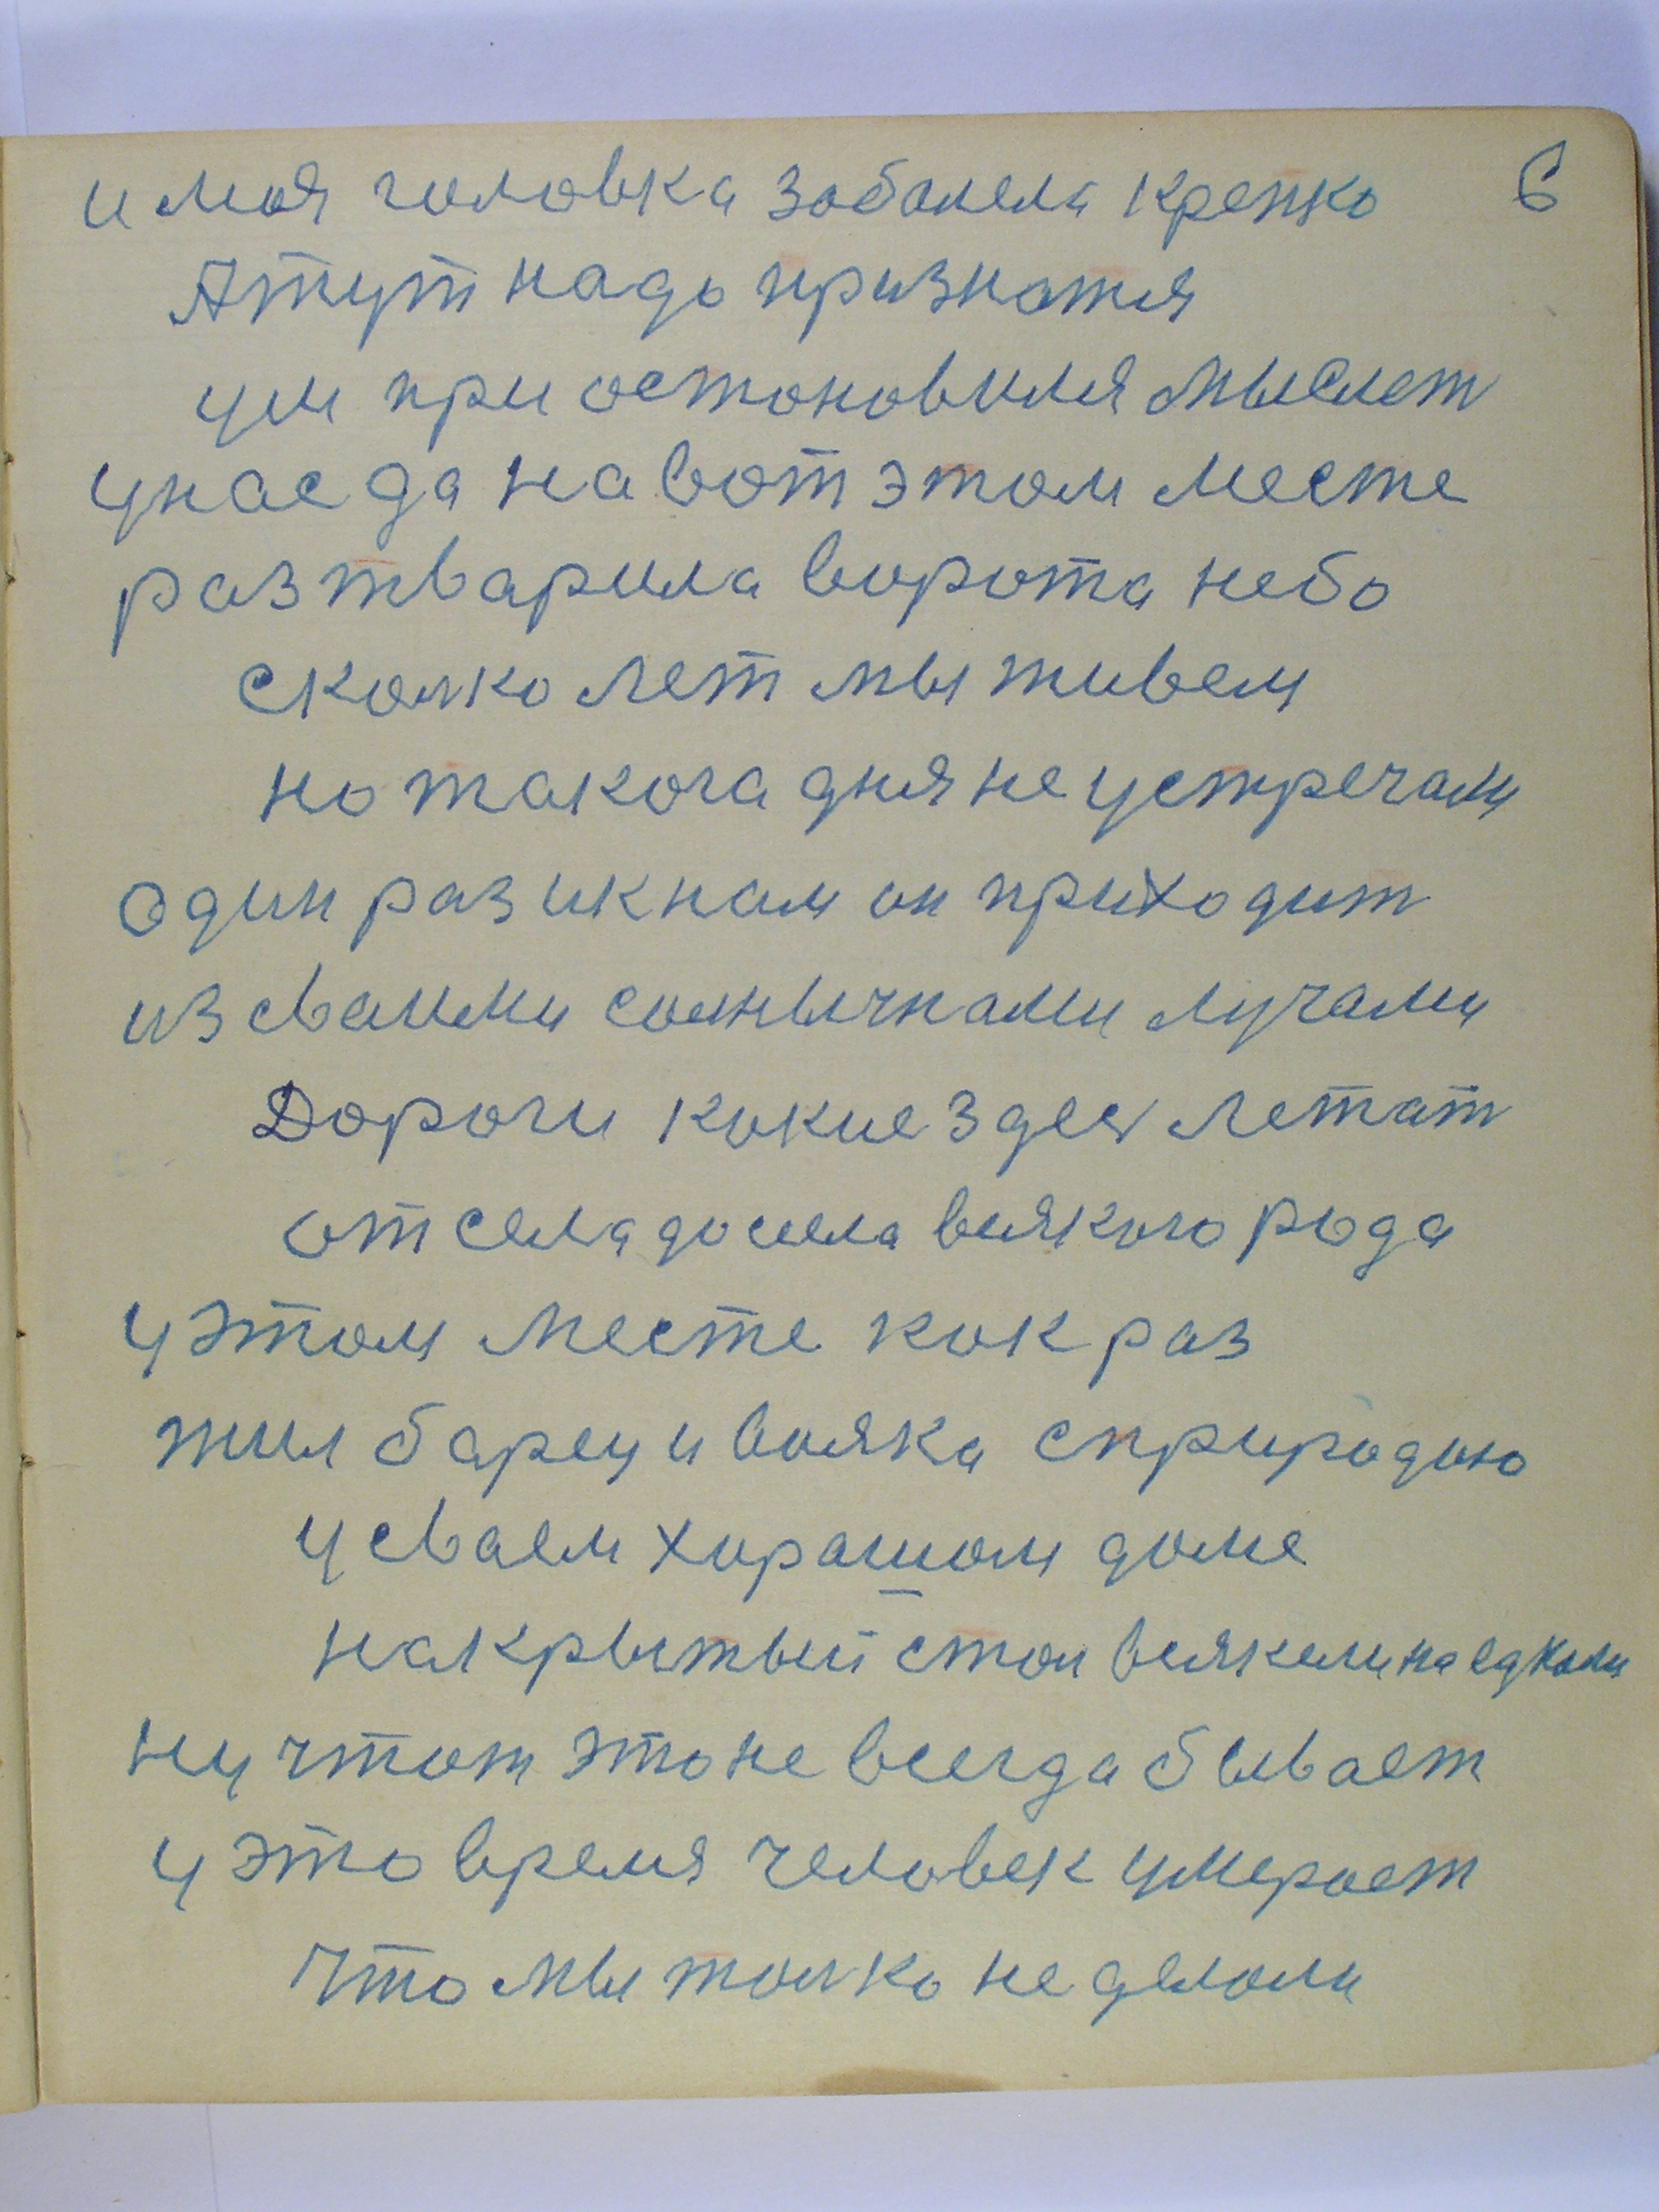 и моя головка заболела крепко 6
А тут надо признатся
ум приостоновился мыслет
у нас да на вот этом месте
разтварила ворота небо
сколко лет мы живем
но такога дня не устречали
один раз и к нам он приходит
из сваими солнычнами лучами
Дороги кокие здес летат
от села до села всякого рода
у этом месте кок раз
жил барец и вояка с природою
у сваем хорашом доме
накрытый стол всякеми на едками
ну что ж это не всегда бывает
у это время человек умероет
что мы толко не делали